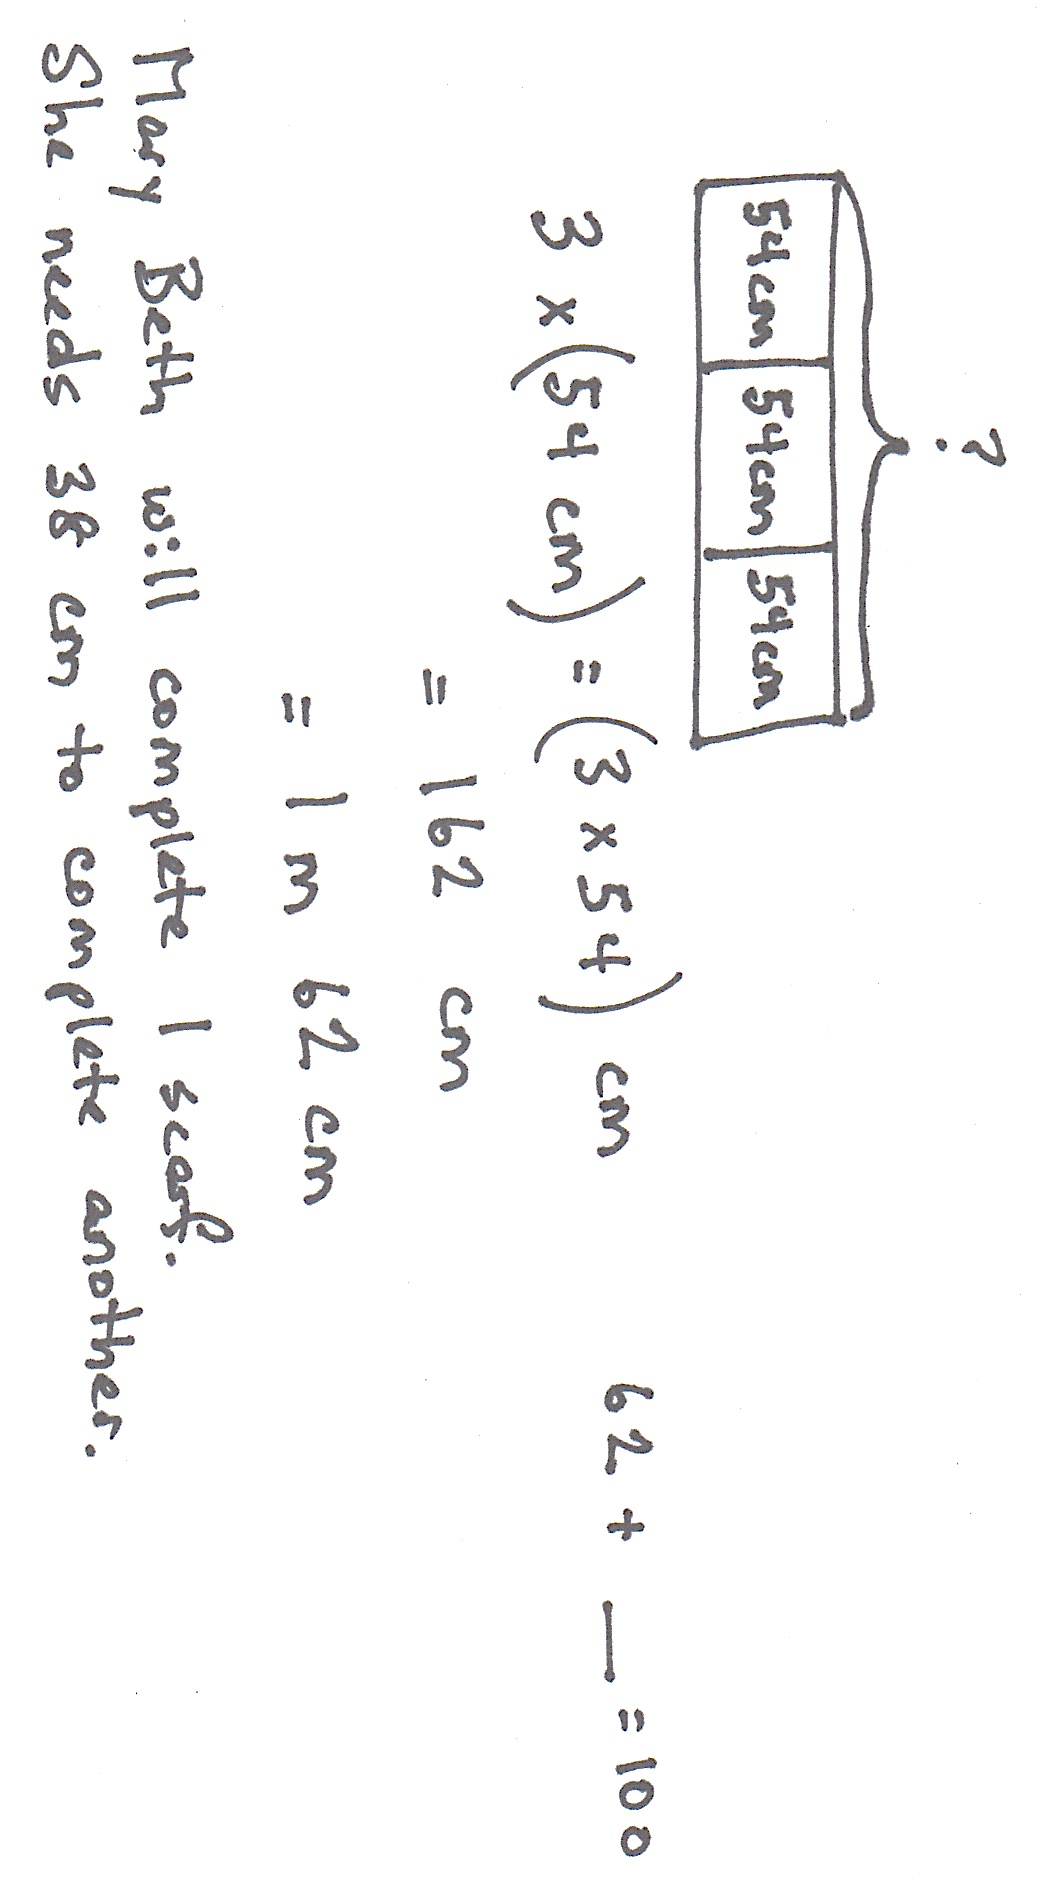 ?
54cm 54cm 54cm
3 × (54 cm) = (3 × 54) cm
62 + __ = 100
= 162 cm
= 1 m 62 cm
Mary Beth will complete 1 scarf.
She needs 38 cm to complete another.